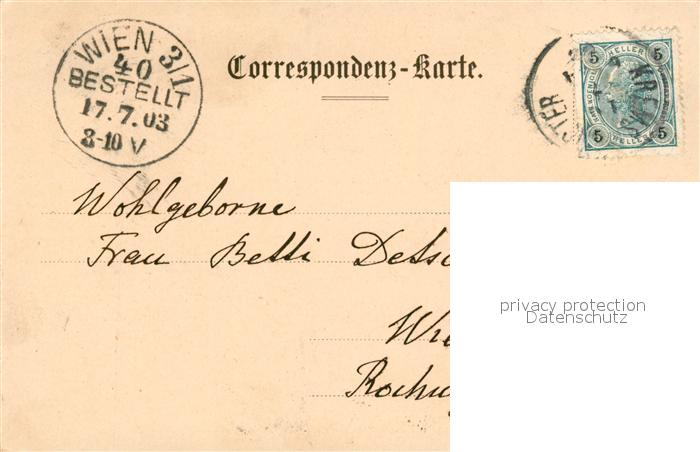 WIEN 3/1
40
BESTELLT
17.7.03
8-10 V
Correspondenz-Karte.
5 HELLER 5
5 HELLER 5
Wohlgeborne
Frau Betti Detsc
Wie
privacy protection
Datenschutz